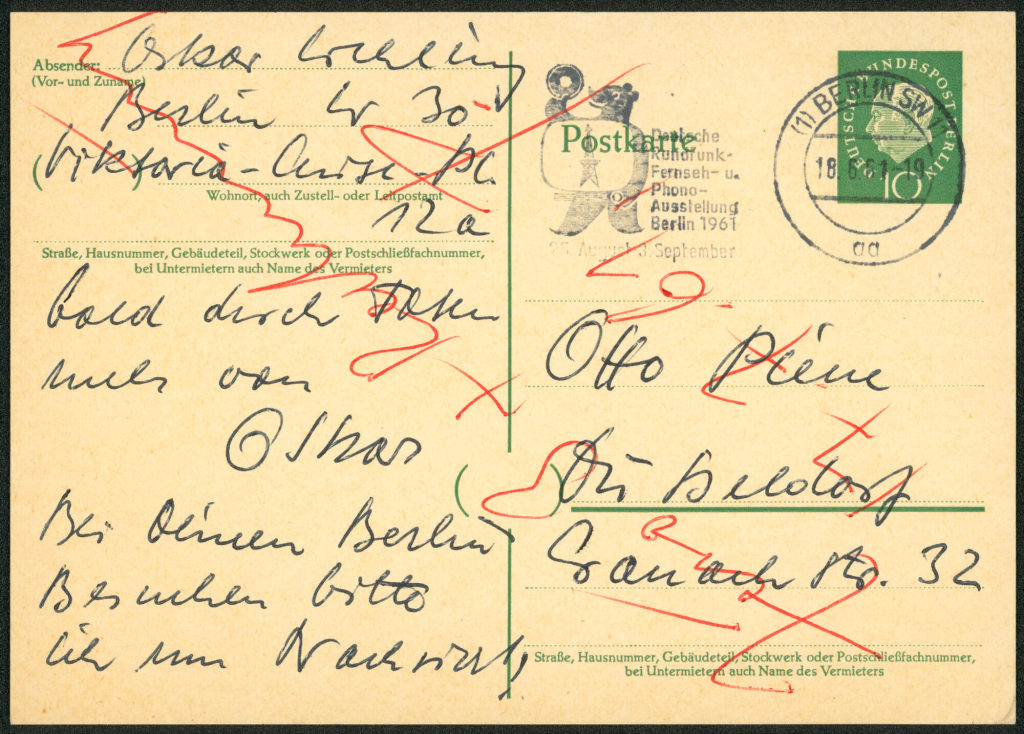 Absender: Oskar
(Vor- und Zuname)
Berlin W 30
Viktoria-Luise-Pl.
Wohnort, auch Zustell- oder Leitpostamt
12a
Straße, Hausnummer, Gebäudeteil, Stockwerk oder Postschließfachnummer,
bei Untermietern auch Name des Vermieters
bald durch
mehr von
Oskar
Bei Deinem Berlin
Besuchen bitte
ich um Nachricht
Postkarte
Deutsche
Rundfunk-
Fernseh- u.
Phono-
Ausstellung
Berlin 1961
25. August-3. September
DEUTSCHE BUNDESPOST BERLIN
10
(1) BERLIN SW
18.6.61-19
aa
Otto Piene
Düsseldorf
Cranach Str. 32
Straße, Hausnummer, Gebäudeteil, Stockwerk oder Postschließfachnummer,
bei Untermietern auch Name des Vermieters